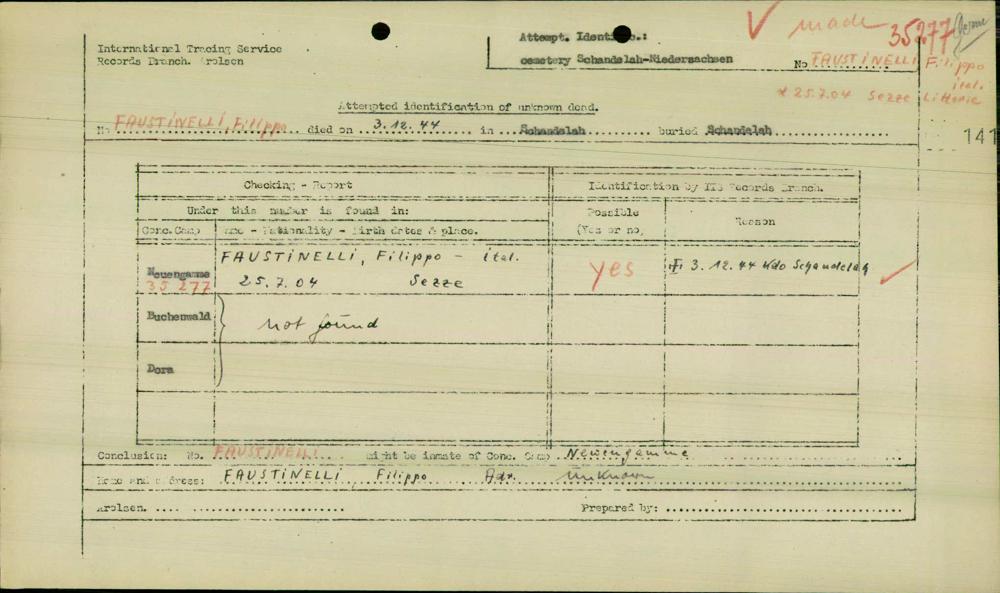 International Tracing Service
Records Branch. Arolsen
Attempt. Identific.:
cemetery Schandelah-Niedersachsen
made 35277
No FAUSTINELLI Filippo
ital.
* 25.7.04 Sezze Littoria
Attempted identification of unknown dead.
No FAUSTINELLI, Filippo died on 3.12.44 in Schandelah buried Schandelah
141
Checking - Report
Identification by ITS Records Branch.
Under this number is found in:
Possible
(Yes or no)
Reason
Conc.Camp
Name - Nationality - Birth dates & place.
Neuengamme
35 277
FAUSTINELLI, Filippo - ital.
25.7.04 Sezze
yes
3.12.44 Kdo Schandelah
Buchenwald
not found
Dora
Conclusion: No. FAUSTINELLI might be inmate of Conc. Camp Neuengamme
Name and address: FAUSTINELLI Filippo Adr. unknown
Arolsen.
Prepared by: